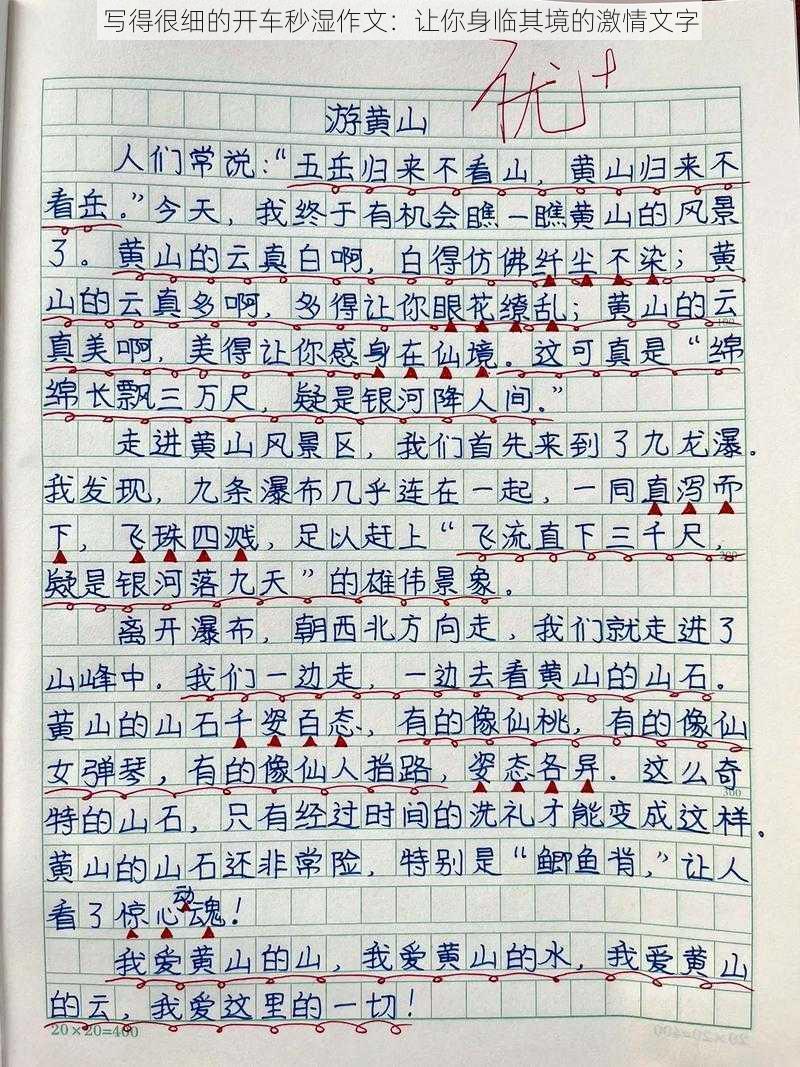 写得很细的开车秒湿作文：让你身临其境的激情文字
优+
游黄山
人们常说：“五岳归来不看山，黄山归来不
看岳。”今天，我终于有机会瞧一瞧黄山的风景
了。黄山的云真白啊，白得仿佛纤尘不染；黄
山的云真多啊，多得让你眼花缭乱；黄山的云
100
真美啊，美得让你感身在仙境。这可真是“绵
绵长飘三万尺，疑是银河降人间。”
走进黄山风景区，我们首先来到了九龙瀑。
我发现，九条瀑布几乎连在一起，一同直泻而
下，飞珠四溅，足以赶上“飞流直下三千尺，
200
疑是银河落九天”的雄伟景象。
离开瀑布，朝西北方向走，我们就走进了
山峰中。我们一边走，一边去看黄山的山石。
黄山的山石千姿百态，有的像仙桃，有的像仙
女弹琴，有的像仙人指路，姿态各异。这么奇
300
特的山石，只有经过时间的洗礼才能变成这样。
黄山的山石还非常险，特别是“鲫鱼背，”让人
看了惊心动魂！
我爱黄山的山，我爱黄山的水，我爱黄山
的云，我爱这里的一切！
20×20=400